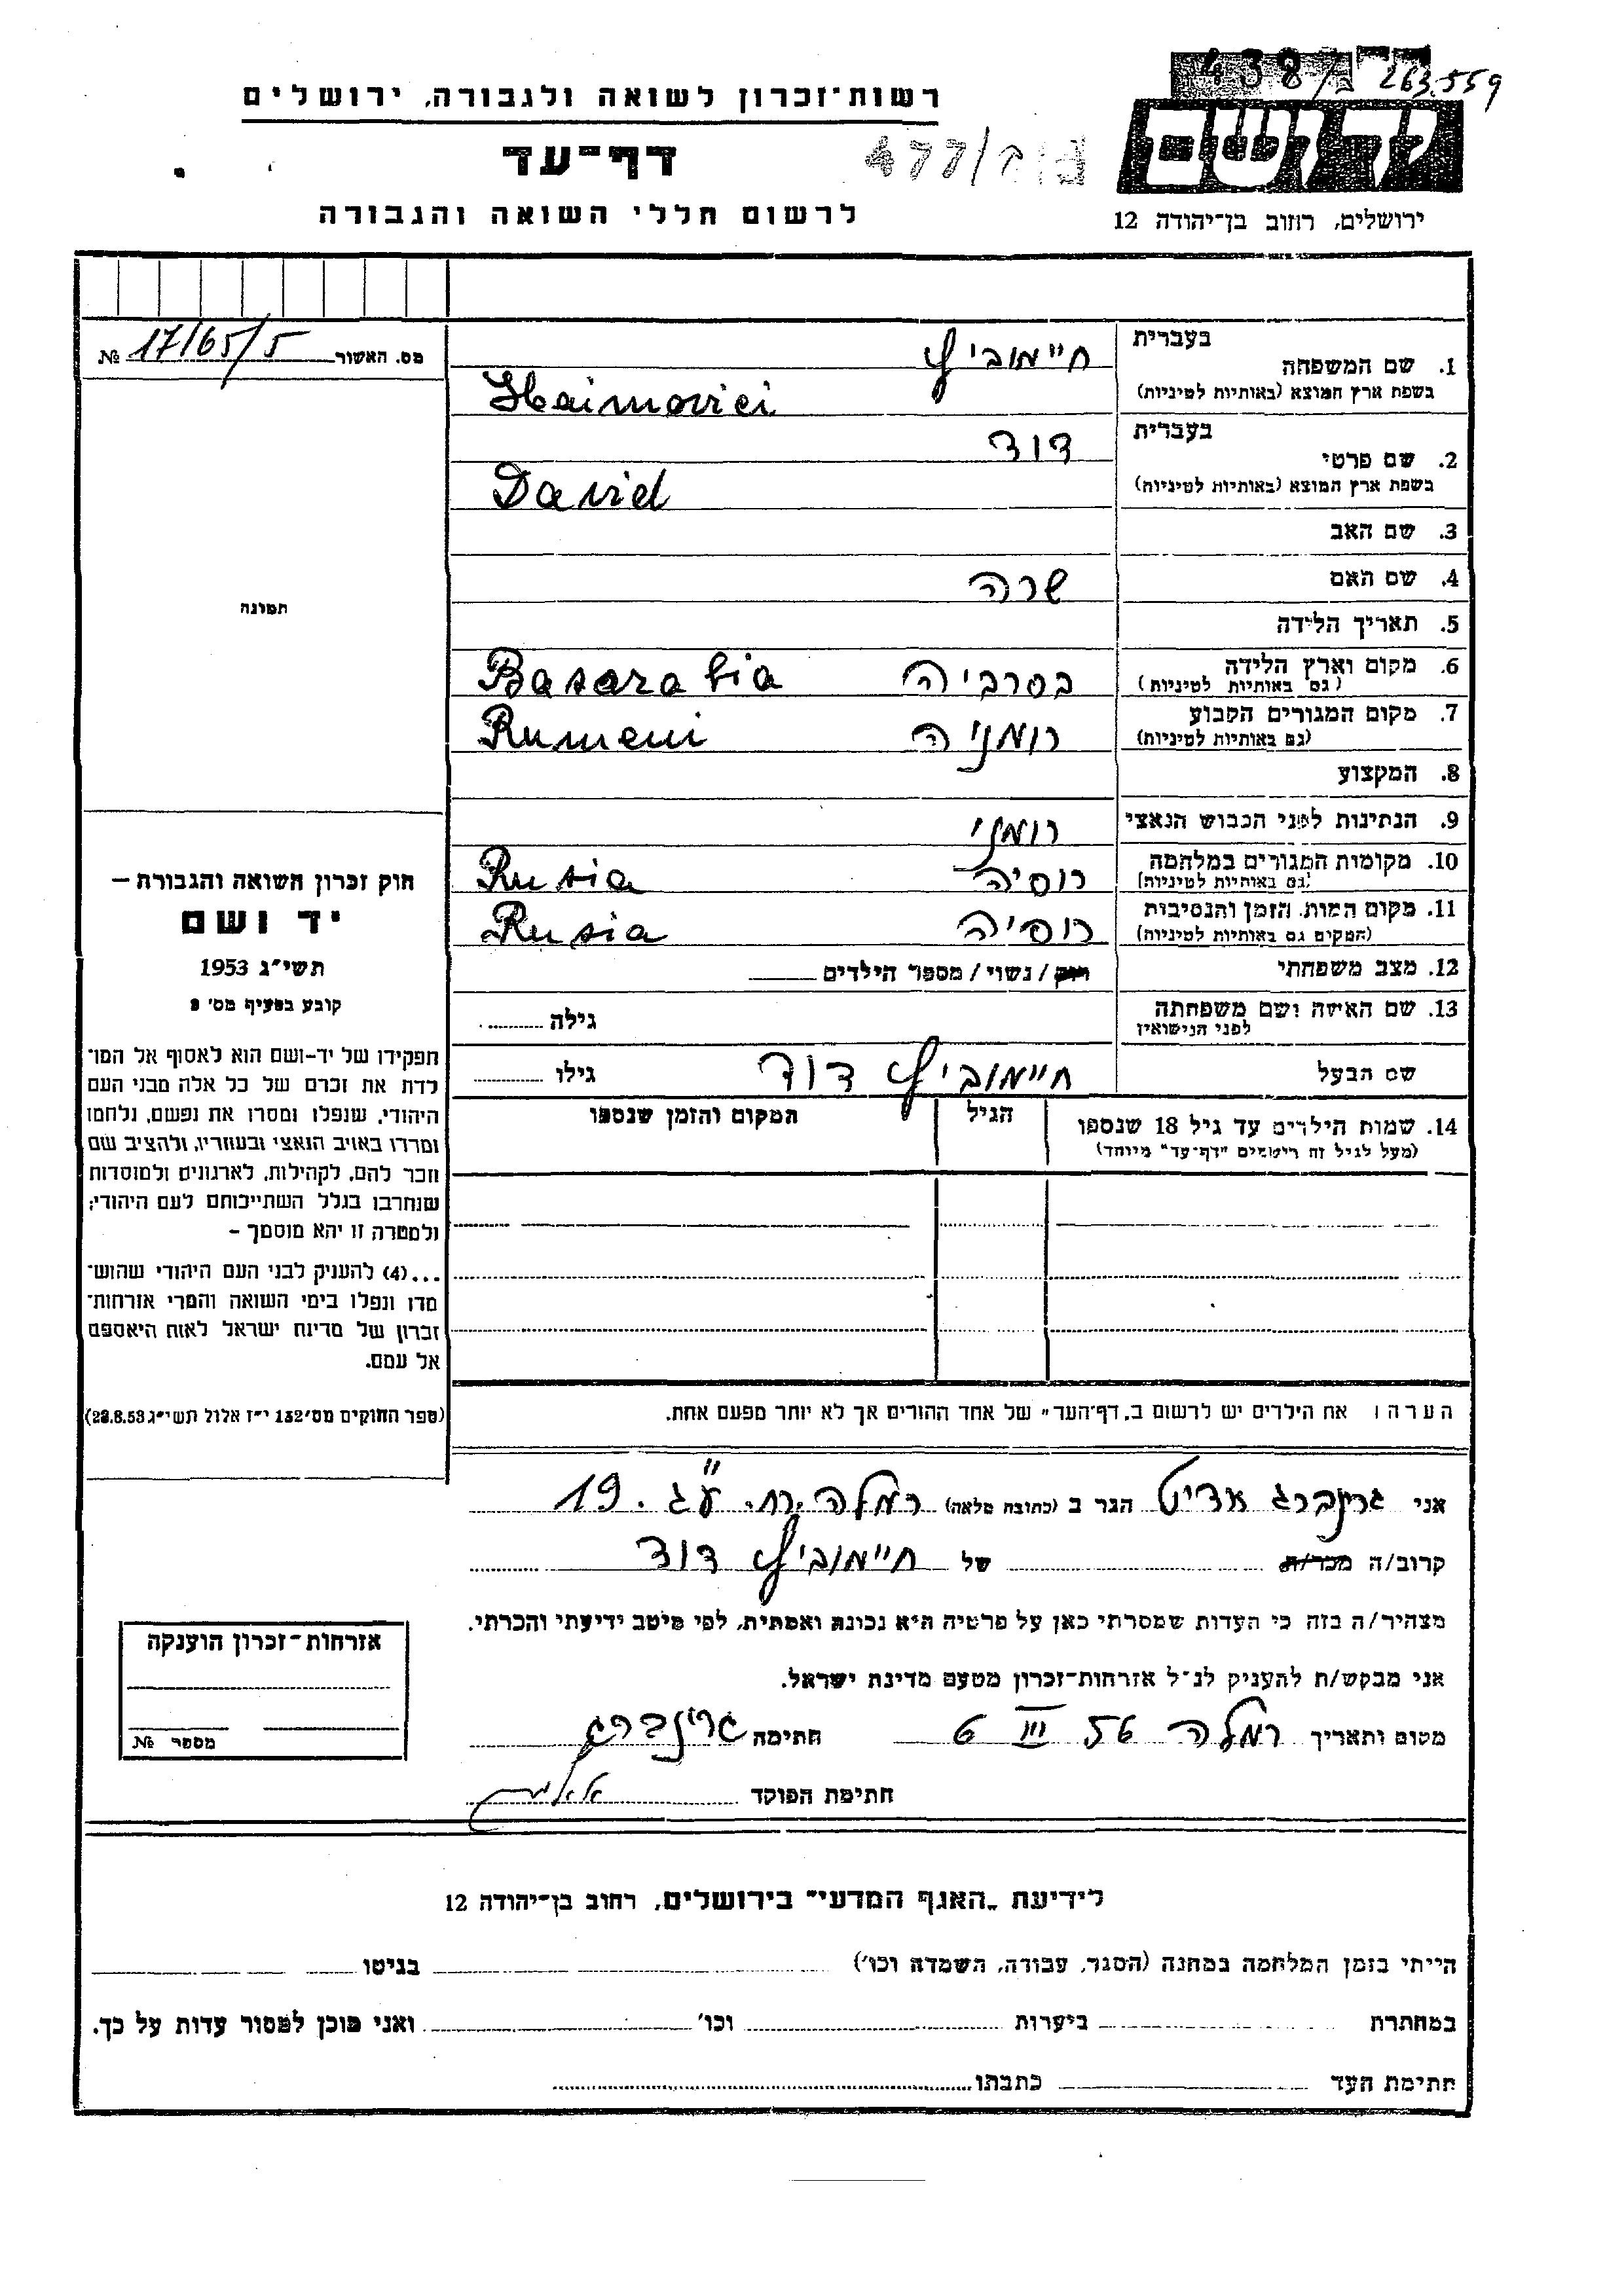 438/ב 263.559
רשות־זכרון לשואה ולגבורה, ירושלים
יד ושם
דף־עד
477/ב
לרשום חללי השואה והגבורה
ירושלים, רחוב בן־יהודה 12
מס. האשור 17/65/5 №
בעברית חיימוביץ
1. שם המשפחה
בשפת ארץ המוצא (באותיות לטיניות) Haimovici
בעברית דוד
2. שם פרטי
בשפת ארץ המוצא (באותיות לטיניות) David
3. שם האב
4. שם האם שרה
תמונה
5. תאריך הלידה
6. מקום וארץ הלידה בסרביה Basarabia
(גם באותיות לטיניות)
7. מקום המגורים הקבוע רומניה Rumeni
(גם באותיות לטיניות)
8. המקצוע
9. הנתינות לפני הכבוש הנאצי רומני
10. מקומות המגורים במלחמה רוסיה Rusia
(גם באותיות לטיניות)
11. מקום המות, הזמן והנסיבות רוסיה Rusia
(המקום גם באותיות לטיניות)
12. מצב משפחתי רווק / נשוי / מספר הילדים
13. שם האישה ושם משפחתה גילה
לפני הנישואין
שם הבעל חיימוביץ דוד גילו
14. שמות הילדים עד גיל 18 שנספו הגיל המקום והזמן שנספו
(מעל לגיל זה רושמים "דף־עד" מיוחד)
חוק זכרון השואה והגבורת —
יד ושם
תשי"ג 1953
קובע בסעיף מס' 2
תפקידו של יד-ושם הוא לאסוף אל המו־
לדת את זכרם של כל אלה מבני העם
היהודי, שנפלו ומסרו את נפשם, נלחמו
ומרדו באויב הנאצי ובעוזריו, ולהציב שם
וזכר להם, לקהילות, לארגונים ולמוסדות
שנחרבו בגלל השתייכותם לעם היהודי;
ולמטרה זו יהא מוסמך -
...(4) להעניק לבני העם היהודי שהוש־
מדו ונפלו בימי השואה והמרי אזרחות־
זכרון של מדינת ישראל לאות היאספם
אל עמם.
(ספר החוקים מס' 132 י"ז אלול תשי"ג 28.8.53)
הערה: את הילדים יש לרשום ב"דף־העד" של אחד ההורים אך לא יותר מפעם אחת.
אני גרינברג אדיט הגר ב (כתובת מלאה) רמלה רח. ג"ע 19
קרוב/ה מכר/ת של חיימוביץ דוד
מצהיר/ה בזה כי העדות שמסרתי כאן על פרטיה היא נכונה ואמתית, לפי מיטב ידיעתי והכרתי.
אני מבקש/ת להעניק לנ"ל אזרחות-זכרון מטעם מדינת ישראל.
מקום ותאריך רמלה 6 III 56 חתימה גרינברג
חתימת הפוקד
אזרחות־זכרון הוענקה
מספר №
לידיעת "האגף המדעי" בירושלים, רחוב בן־יהודה 12
הייתי בזמן המלחמה במחנה (הסגר, עבודה, השמדה וכו') בגיטו
במחתרת ביערות וכו' ואני מוכן למסור עדות על כך.
חתימת העד כתבתו